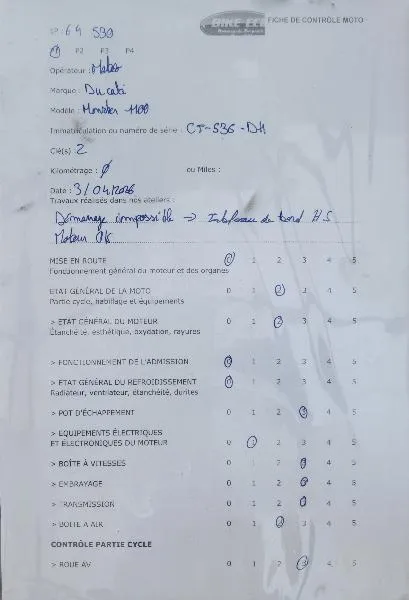 64 590
BIKE ECO
FICHE DE CONTRÔLE MOTO
P1 P2 P3 P4
Opérateur : Mateo
Marque : Ducati
Modèle : Monster 1100
Immatriculation ou numéro de série : CT-536-DH
Clé(s) : 2
Kilométrage : 0 ou Miles :
Date : 3/04/2026
Travaux réalisés dans nos ateliers :
Démarrage impossible -> Tableau de bord H.S
Moteur OK
MISE EN ROUTE 0 1 2 3 4 5
Fonctionnement général du moteur et des organes
ETAT GÉNÉRAL DE LA MOTO 0 1 2 3 4 5
Partie cycle, habillage et équipements
> ETAT GÉNÉRAL DU MOTEUR 0 1 2 3 4 5
Étanchéité, esthétique, oxydation, rayures
> FONCTIONNEMENT DE L'ADMISSION 0 1 2 3 4 5
> ETAT GÉNÉRAL DU REFROIDISSEMENT 0 1 2 3 4 5
Radiateur, ventilateur, étanchéité, durites
> POT D'ÉCHAPPEMENT 0 1 2 3 4 5
> EQUIPEMENTS ÉLECTRIQUES
ET ÉLECTRONIQUES DU MOTEUR 0 1 2 3 4 5
> BOÎTE À VITESSES 0 1 2 3 4 5
> EMBRAYAGE 0 1 2 3 4 5
> TRANSMISSION 0 1 2 3 4 5
> BOITE A AIR 0 1 2 3 4 5
CONTRÔLE PARTIE CYCLE
> ROUE AV 0 1 2 3 4 5